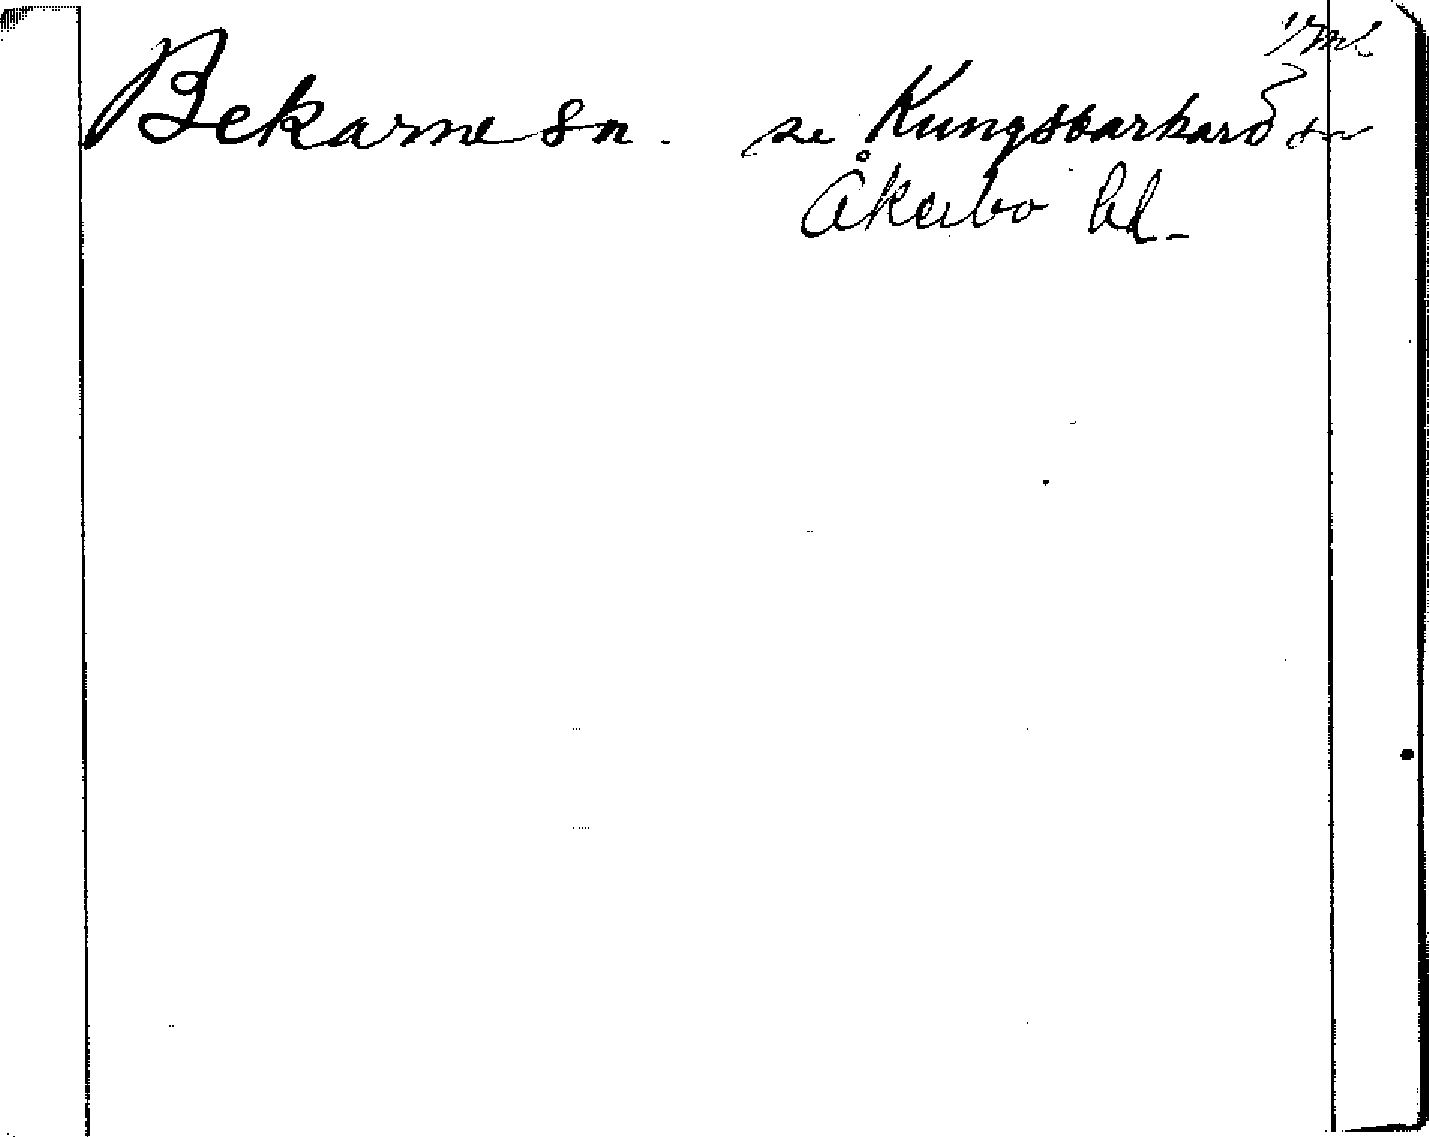 Vml.
Bekarne sn. se Kungsbarkarö sn
Åkerbo hd.